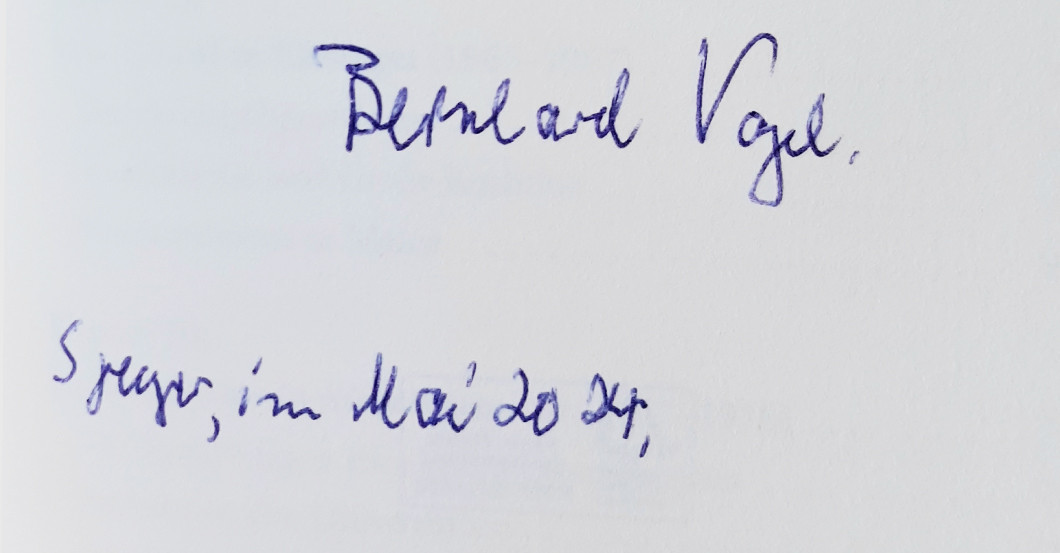 Bernhard Vogel.
Speyer, im Mai 2024,